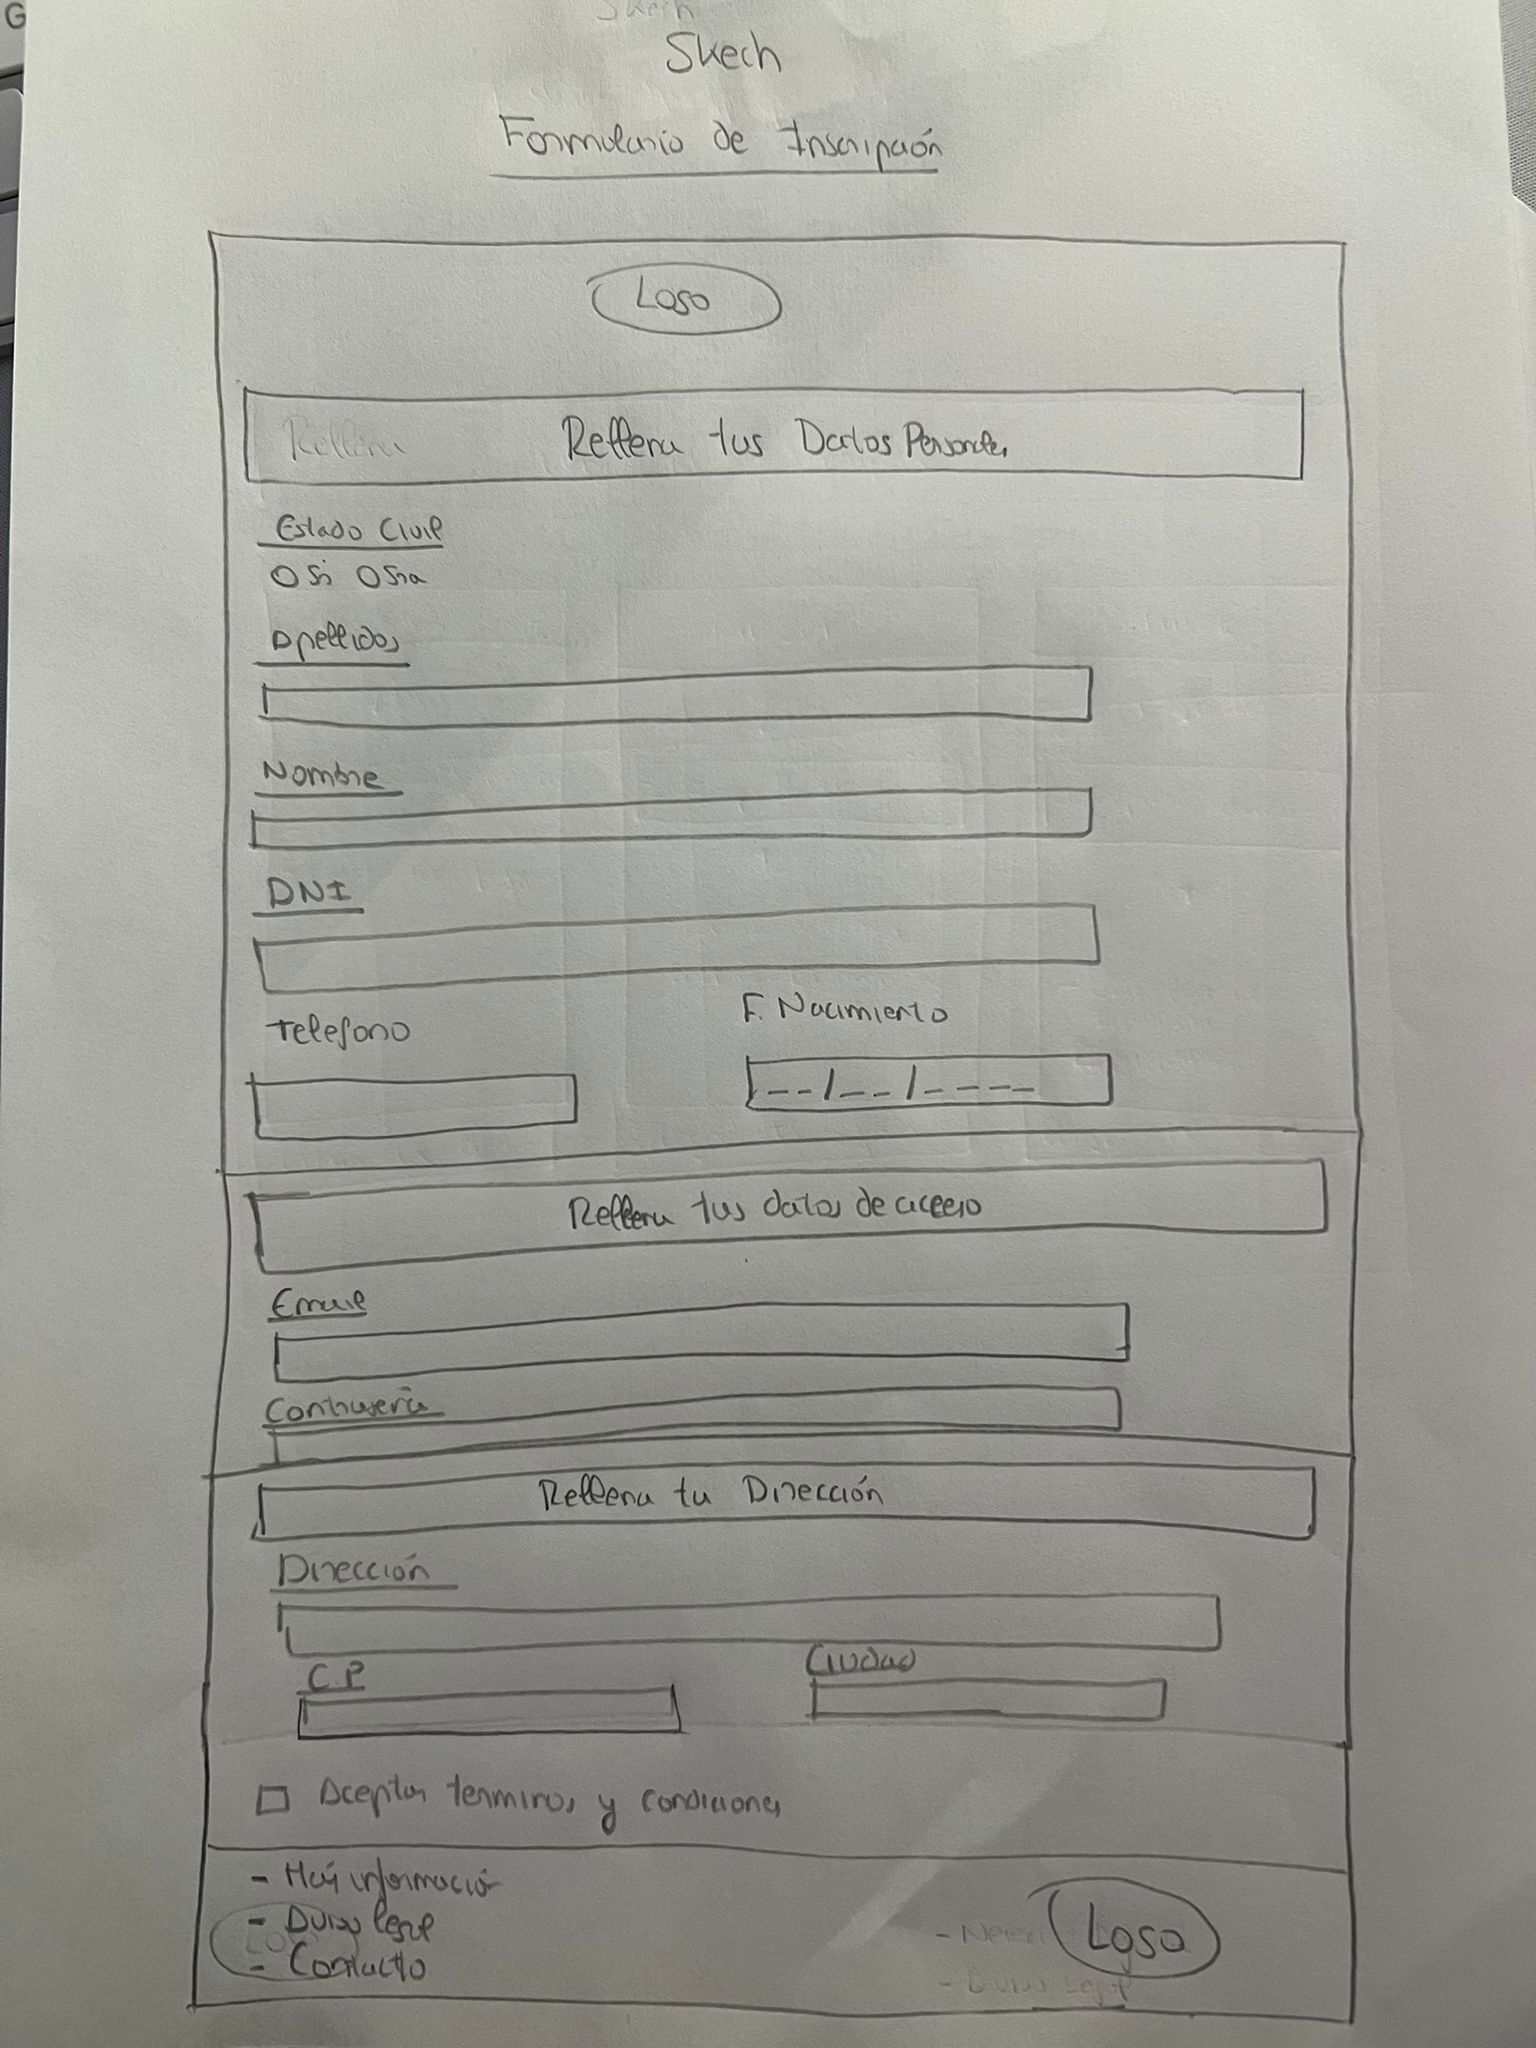 Skech
Skech
Formulario de Inscripción
Logo
Rellena Rellena tus Datos Personales
Estado Civil
Sr Sra
Apellidos
Nombre
DNI
Telefono F. Nacimiento
--/--/----
Rellena tus datos de acceso
Email
Contraseña
Rellena tu Dirección
Dirección
C.P Ciudad
Aceptar terminos y condiciones
- Más información
- Aviso legal
- Contacto
Logo
- Aviso Legal